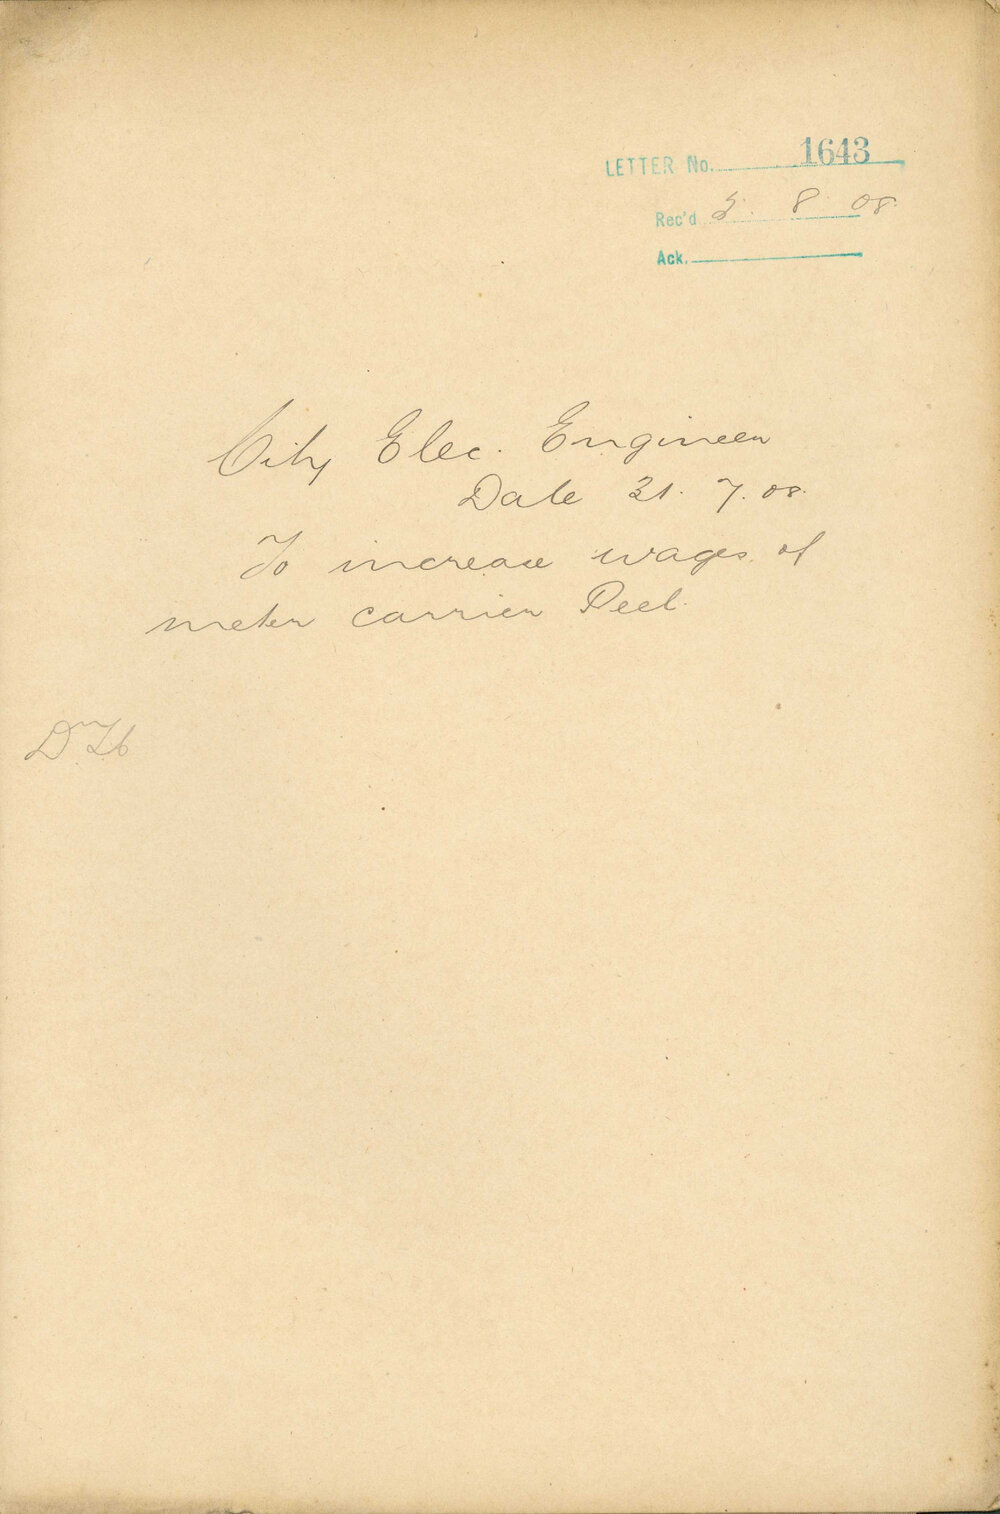 LETTER No. 1643
Rec'd 8 08
Ack.
City Elec. Engineer
Date 31. 7. 08.
To increase wages of
meter carrier Peel.